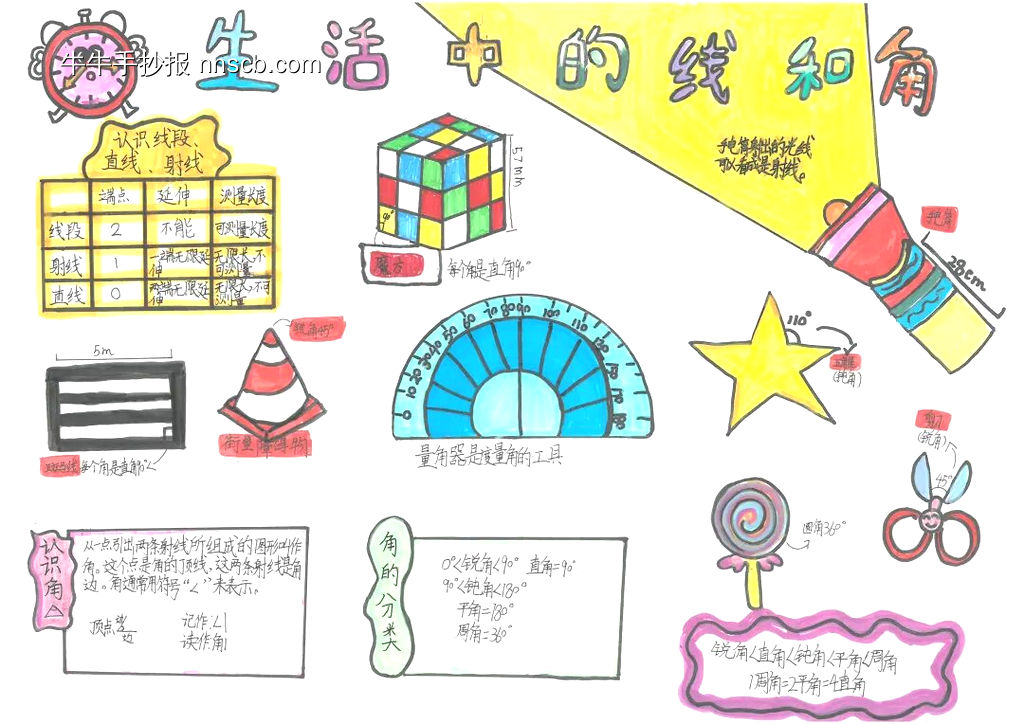 生活中的线和角
牛牛手抄报 nnscb.com
认识线段、
直线、射线
端点 延伸 测量长度
线段 2 不能 可测量长度
射线 1 一端无限延伸 无限长,不可测量
直线 0 两端无限延伸 无限长,不可测量
57mm
90°
魔方
每个角是直角90°
手电筒射出的光线
可以看成是射线。
28cm
5m
每个角是直角90°
锐角45°
0 10 20 30 40 50 60 70 80 90 100 110 130
量角器是度量角的工具
110°
(钝角)
剪刀
(锐角)
45°
圆角360°
认识角
从一点引出两条射线所组成的图形叫作
角。这个点是角的顶线,这两条射线是角
边。角通常用符号“∠”来表示。
顶点 边
边
记作:∠1
读作:角1
角的分类
0°<锐角<90° 直角=90°
90°<钝角<180°
平角=180°
周角=360°
锐角<直角<钝角<平角<周角
1周角=2平角=4直角